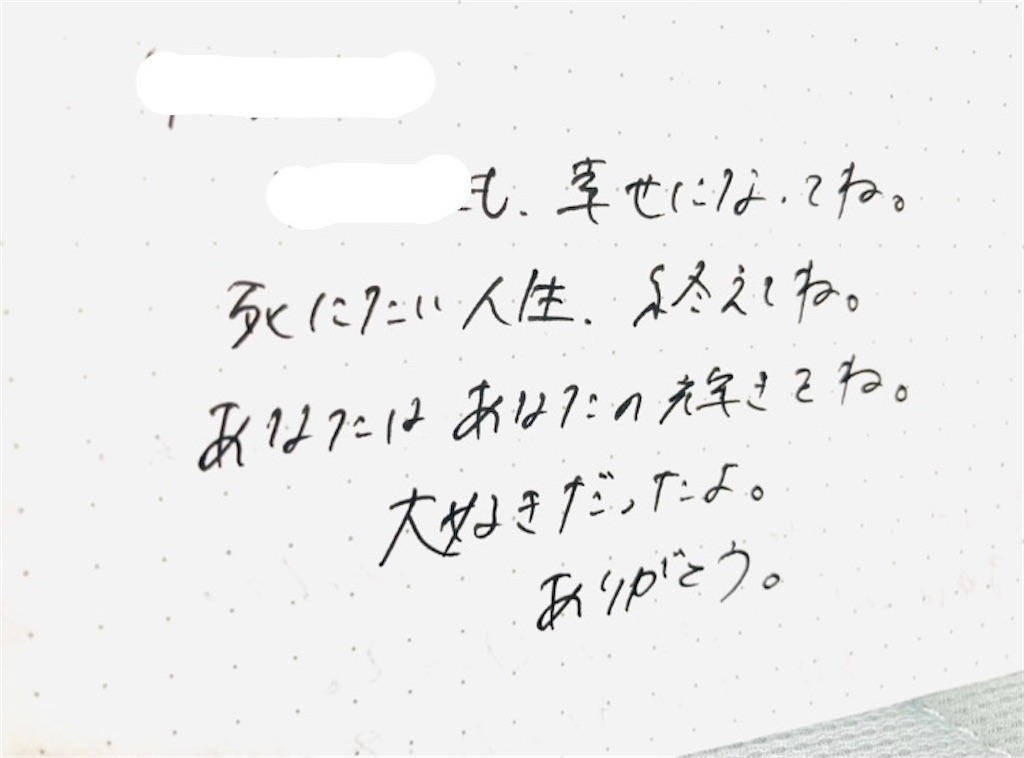 も、幸せになってね。
死にたい人生、終えてね。
あなたはあなたの生きてね。
大好きだったよ。
ありがとう。